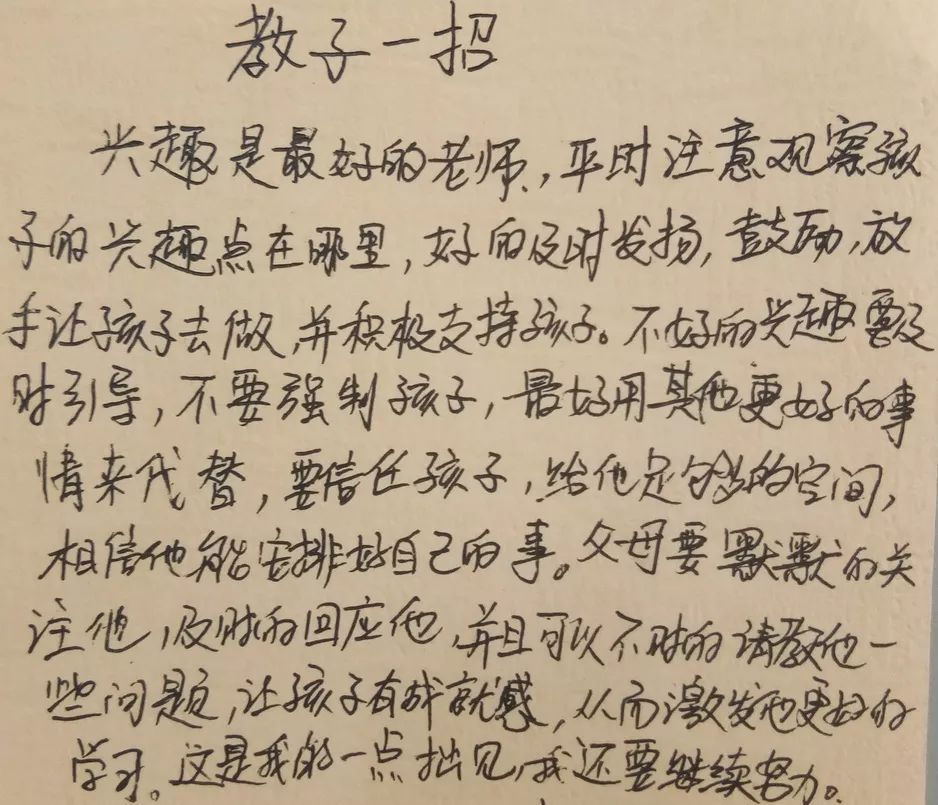 教子一招
兴趣是最好的老师,平时注意观察孩
子的兴趣点在哪里,好的及时发扬,鼓励,放
手让孩子去做,并积极支持孩子。不好的兴趣要及
时引导,不要强制孩子,最好用其他更好的事
情来代替,要信任孩子,给他足够的空间,
相信他能安排好自己的事。父母要默默的关
注他,及时的回应他,并且可以不时的请教他一
些问题,让孩子有成就感,从而激发他更好的
学习。这是我的一点拙见,我还要继续努力。